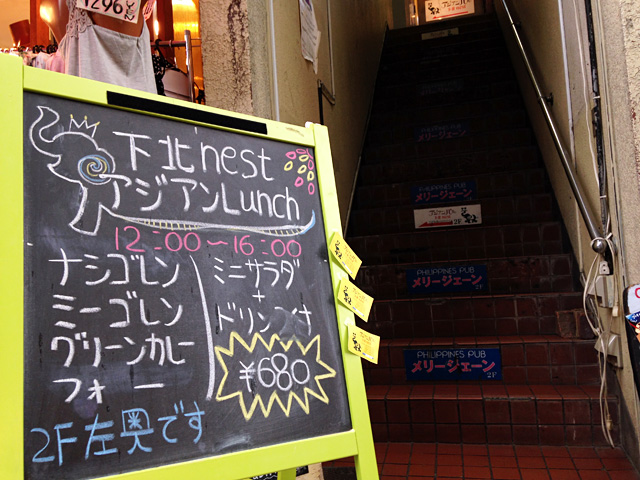 1296
下北 nest
アジアンLunch
12:00〜16:00
ナシゴレン
ミーゴレン
グリーンカレー
フォー
ミニサラダ
+
ドリンク付
¥680
2F左奥です
メリージェーン
PHILIPPINES PUB
メリージェーン
2F
PHILIPPINES PUB
メリージェーン
2F
PHILIPPINES PUB
メリージェーン
2F